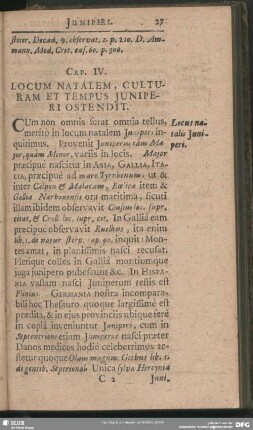 JUNIPERI. 27
ster. Decad. 9. observat. 2. p. 210. D. Am-
mann. Med. Crit. cas. 60. p. 500.
CAP. IV.
LOCUM NATALEM, CULTU-
RAM ET TEMPUS JUNIPE-
RI OSTENDIT.
CUm non omnis ferat omnia tellus,
merito in locum natalem Juniperi in-
quirimus. Provenit Juniperus tam Ma-
jor, quàm Minor, variis in locis. Major
præcipuè nascitur in ASIA, GALLIA, ITA-
LIA, præcipuè ad mare Tyrrhenum, ut &
inter Calpen & Malacam, Bœtica item &
Gallia Narbonensis ora maritima, sicuti
illam ibidem observavit Clusius loc. supr.
citat. & Croll. loc. supr. cit. In Gallia eam
præcipuè observavit Ruellius, ita enim
lib. 1. de natur stirp. cap. 90. inquit: Mon-
tes amat, in planissimis nasci recusat.
Plerique colles in Gallia montiumque
juga junipero pubescunt &c. In HISPA-
NIA vastam nasci Juniperum testis est
Plinius. GERMANIA nostra incompara-
bili hoc Thesauro quoque largissimè est
prædita, & in ejus provinciis ubique ferè
in copia inveniuntur Juniperi, cum in
Septentrione etiam Juniperus nasci præter
Danos medicos hodiè celeberrimos te-
stetur quoque Olaus magnus Gothus lib. 12.
de gentib. Septentrional. Unica sylva Hercynia
C 2 Juni-
Locus na-
talis Juni-
peri.
SLUB
DFG